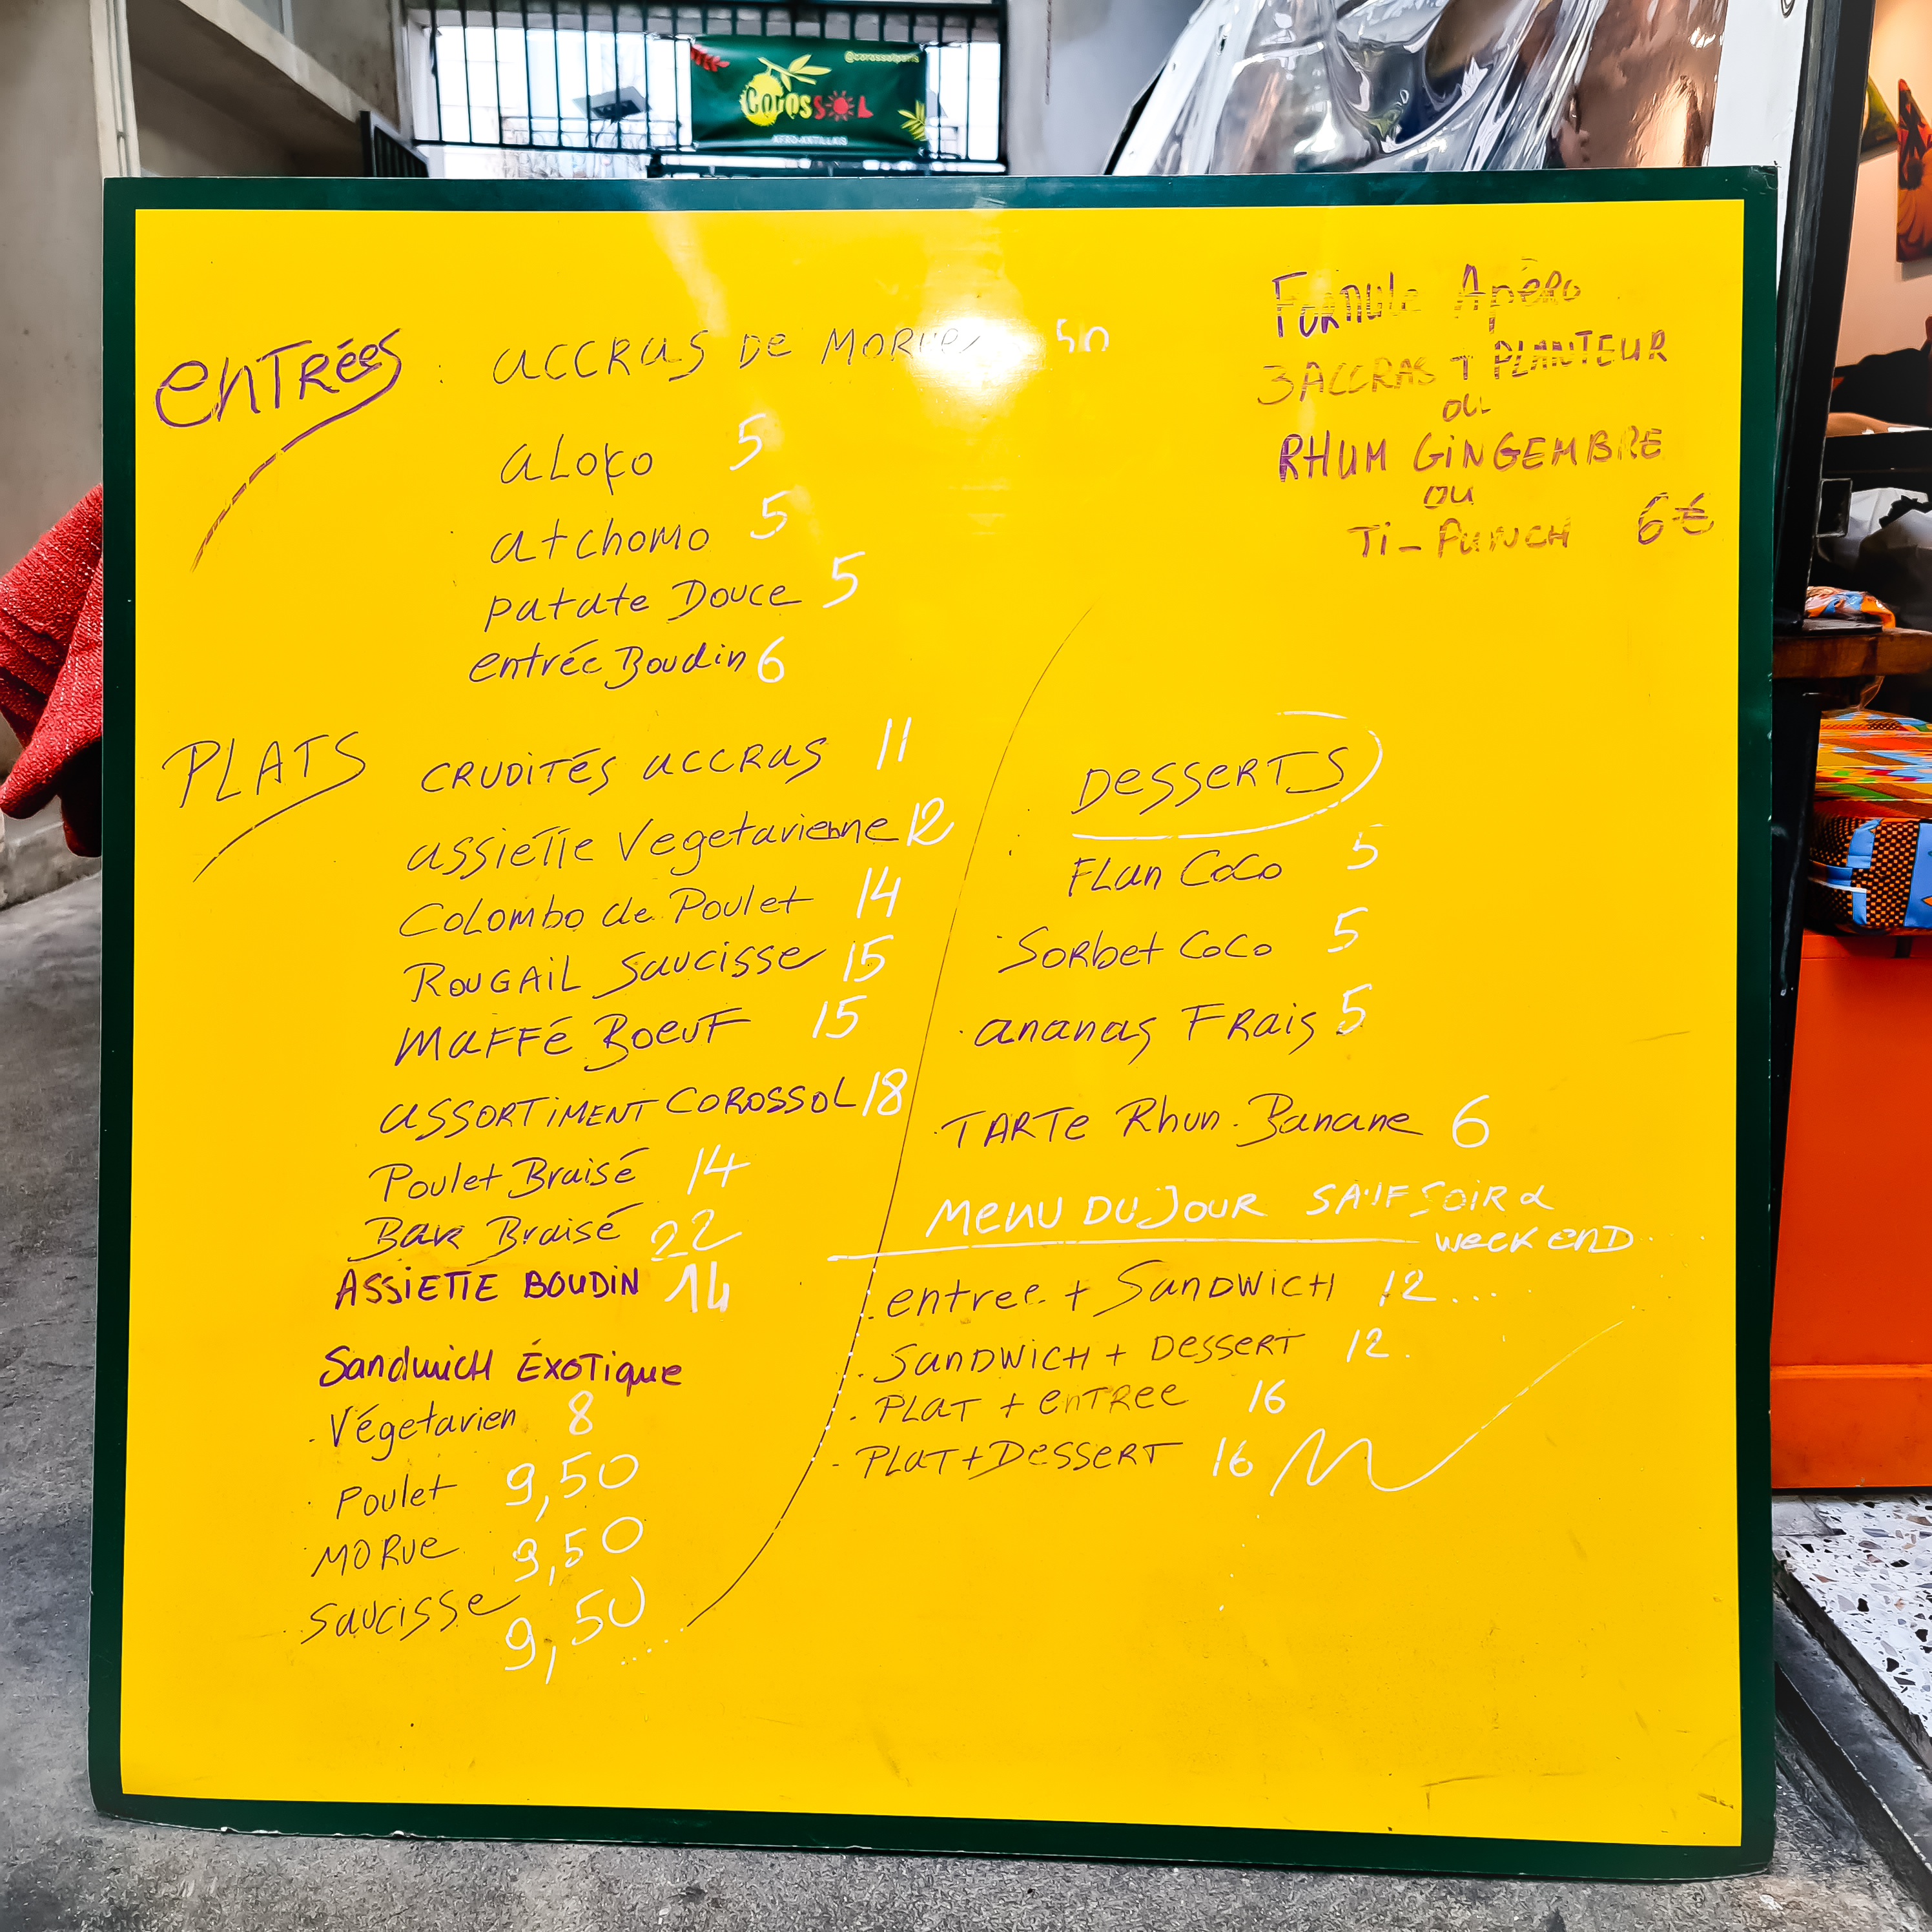 @corossolparis
COROSSOL
AFRO-ANTILLAIS
entrées : accras de morue 50
aloko 5
atchomo 5
patate Douce 5
entrée Boudin 6
Formule Apéro
3 ACCRAS + PLANTEUR
ou
RHUM GINGEMBRE
ou
Ti-PUNCH 6€
PLATS CRUDITÉS accras 11
assiette Vegetarienne 12
Colombo de Poulet 14
ROUGAIL Saucisse 15
MAFFÉ BOEUF 15
ASSORTIMENT COROSSOL 18
Poulet Braisé 14
Bar Braisé 22
ASSIETTE BOUDIN 14
SandwicH ÉXOTique
. Végetarien 8
. Poulet 9,50
. MORue 9,50
. Saucisse 9,50
Desserts
FLan CoCo 5
. Sorbet CoCo 5
. ananas FRais 5
. TARTe Rhum. Banane 6
Menu DU JOUR SAUF SOIR &
week enD
. entree + SanDWicH 12....
. SanDWicH + Dessert 12.
. PLat + entree 16
- PLat + Dessert 16